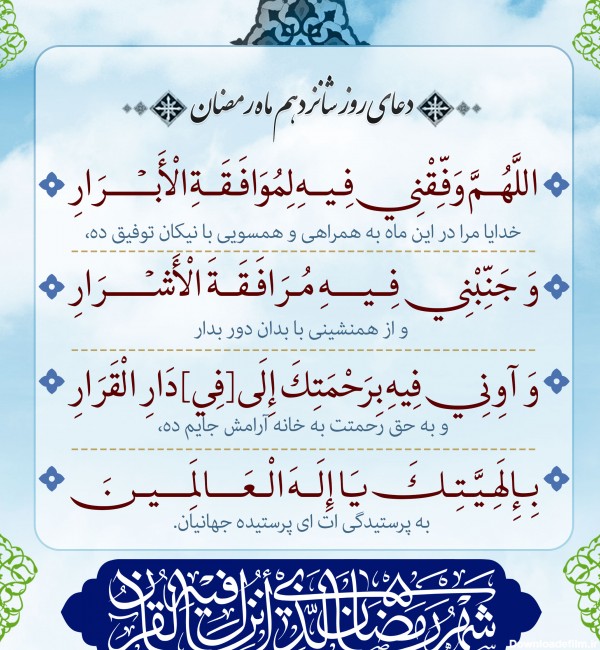 دعای روز شانزدهم ماه رمضان
اللَّهُمَّ وَفِّقْنِي فِيهِ لِمُوَافَقَةِ الْأَبْرَارِ
خدایا مرا در این ماه به همراهی و همسویی با نیکان توفیق ده،
وَ جَنِّبْنِي فِيهِ مُرَافَقَةَ الْأَشْرَارِ
و از همنشینی با بدان دور بدار
وَ آوِنِي فِيهِ بِرَحْمَتِكَ إِلَى [فِي] دَارِ الْقَرَارِ
و به حق رحمتت به خانه آرامش جایم ده،
بِإِلَهِيَّتِكَ يَا إِلَهَ الْعَالَمِينَ
به پرستیدگی ات ای پرستیده جهانیان.
شَهْرُ رَمَضَانَ الَّذِي أُنْزِلَ فِيهِ الْقُرْآنُ